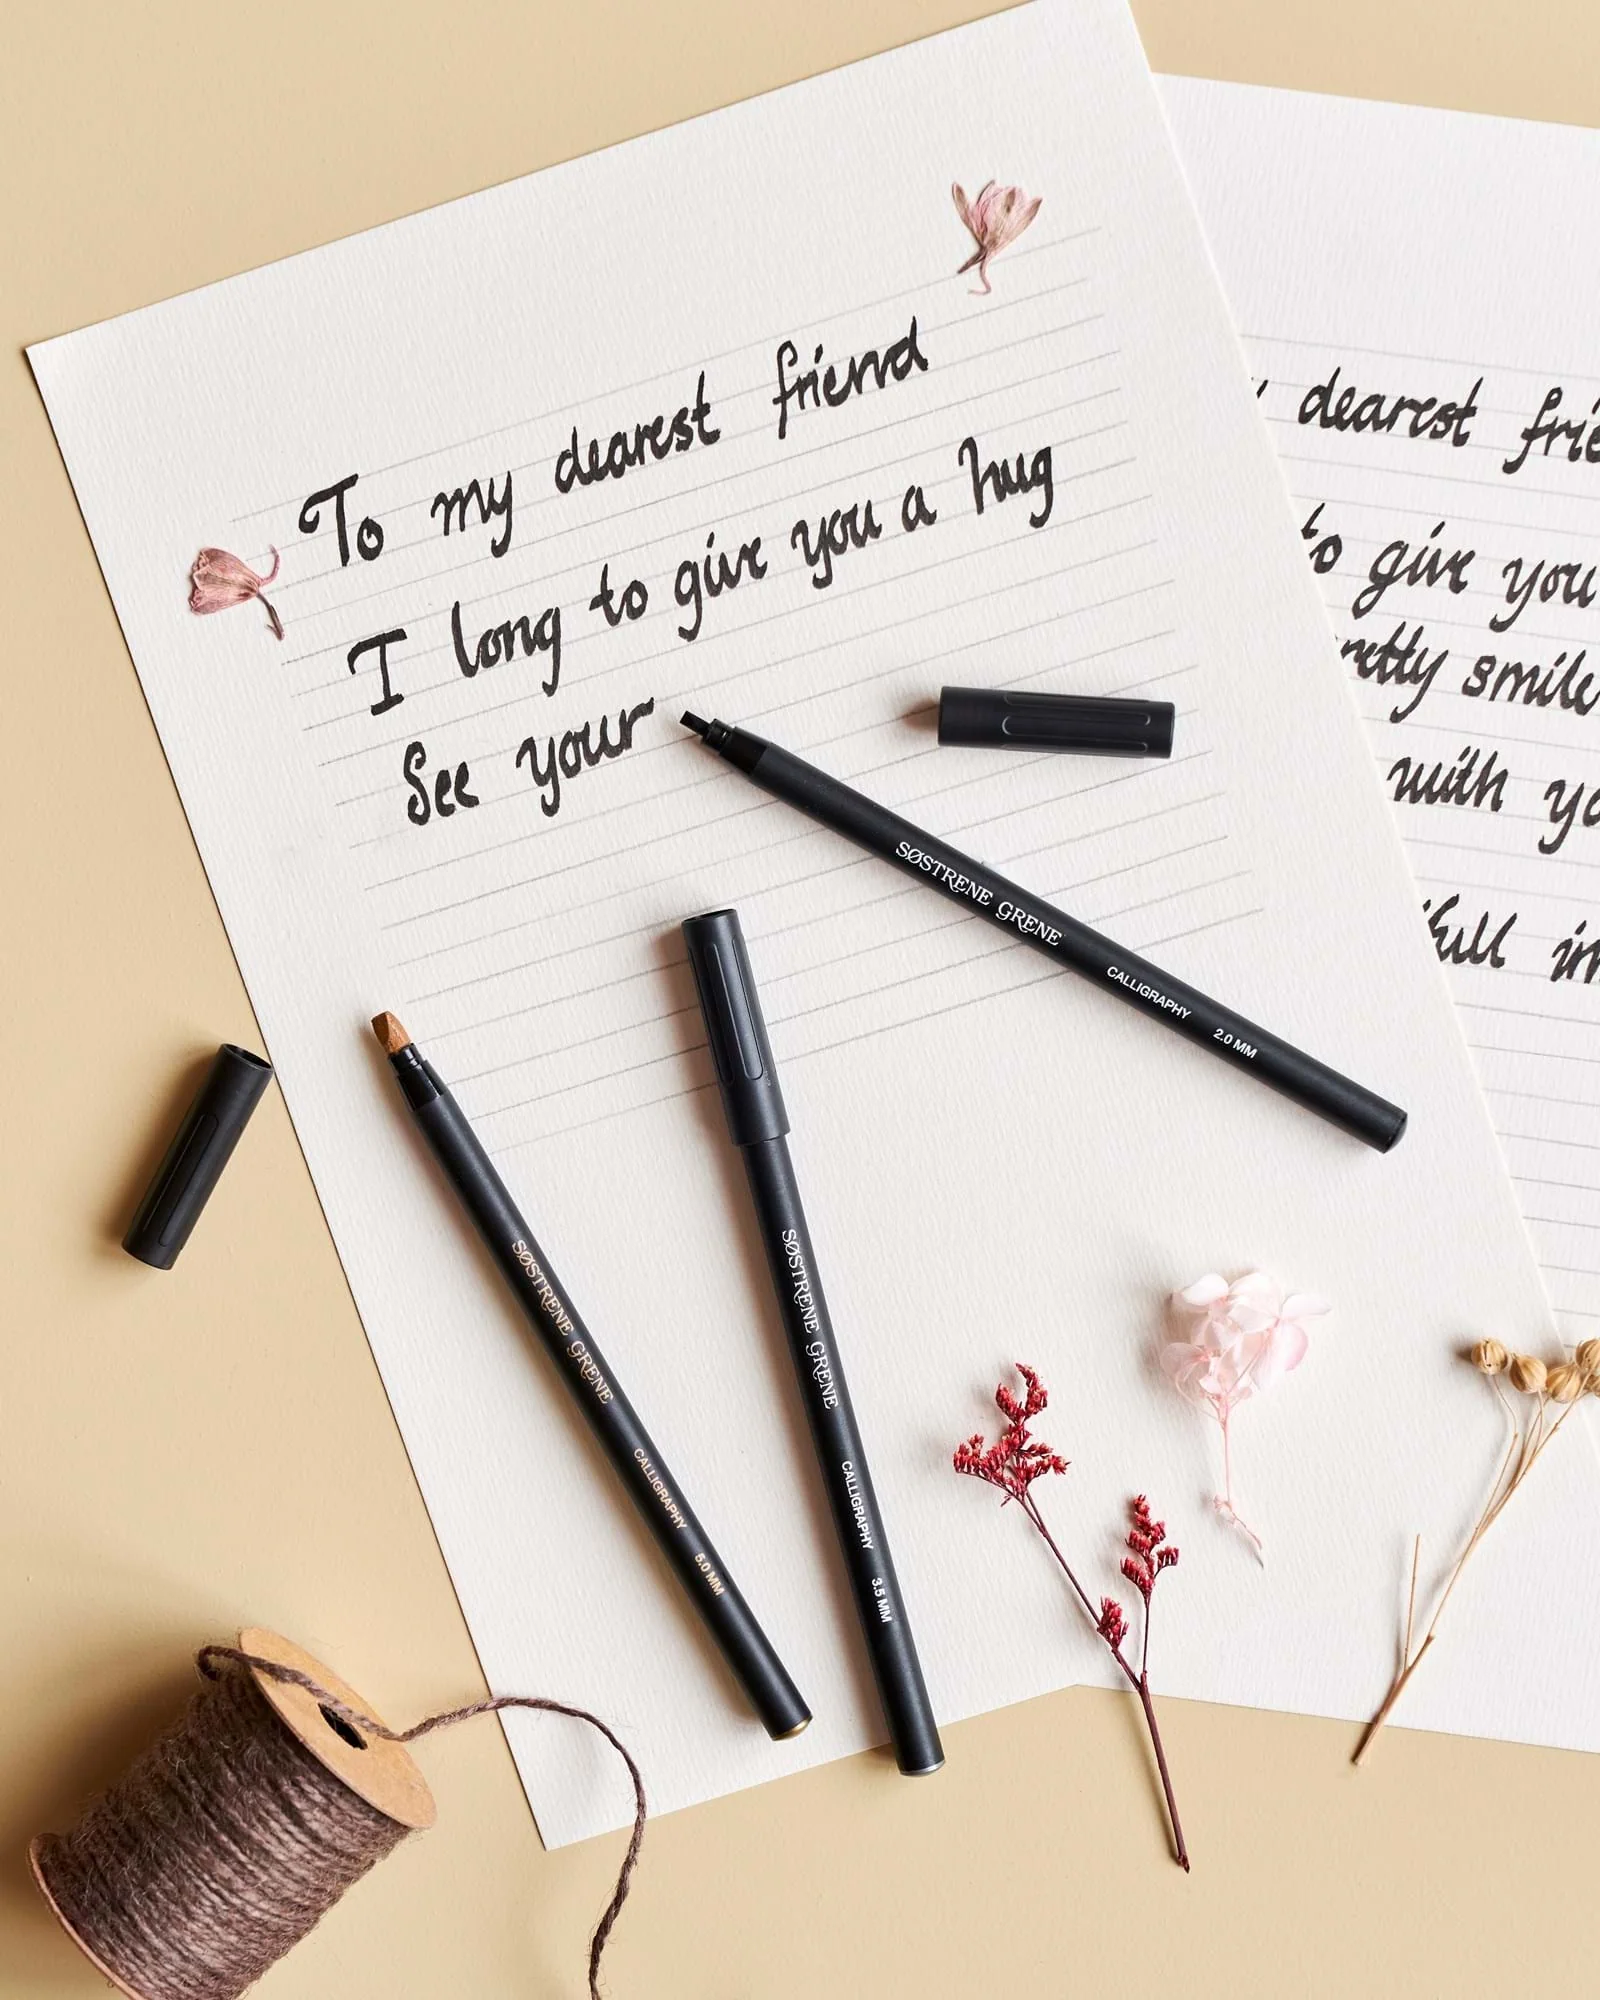 To my dearest friend
I long to give you a hug
See your
dearest
to give you
smile
with
SØSTRENE GRENE CALLIGRAPHY 2.0 MM
SØSTRENE GRENE CALLIGRAPHY 5.0 MM
SØSTRENE GRENE CALLIGRAPHY 3.5 MM